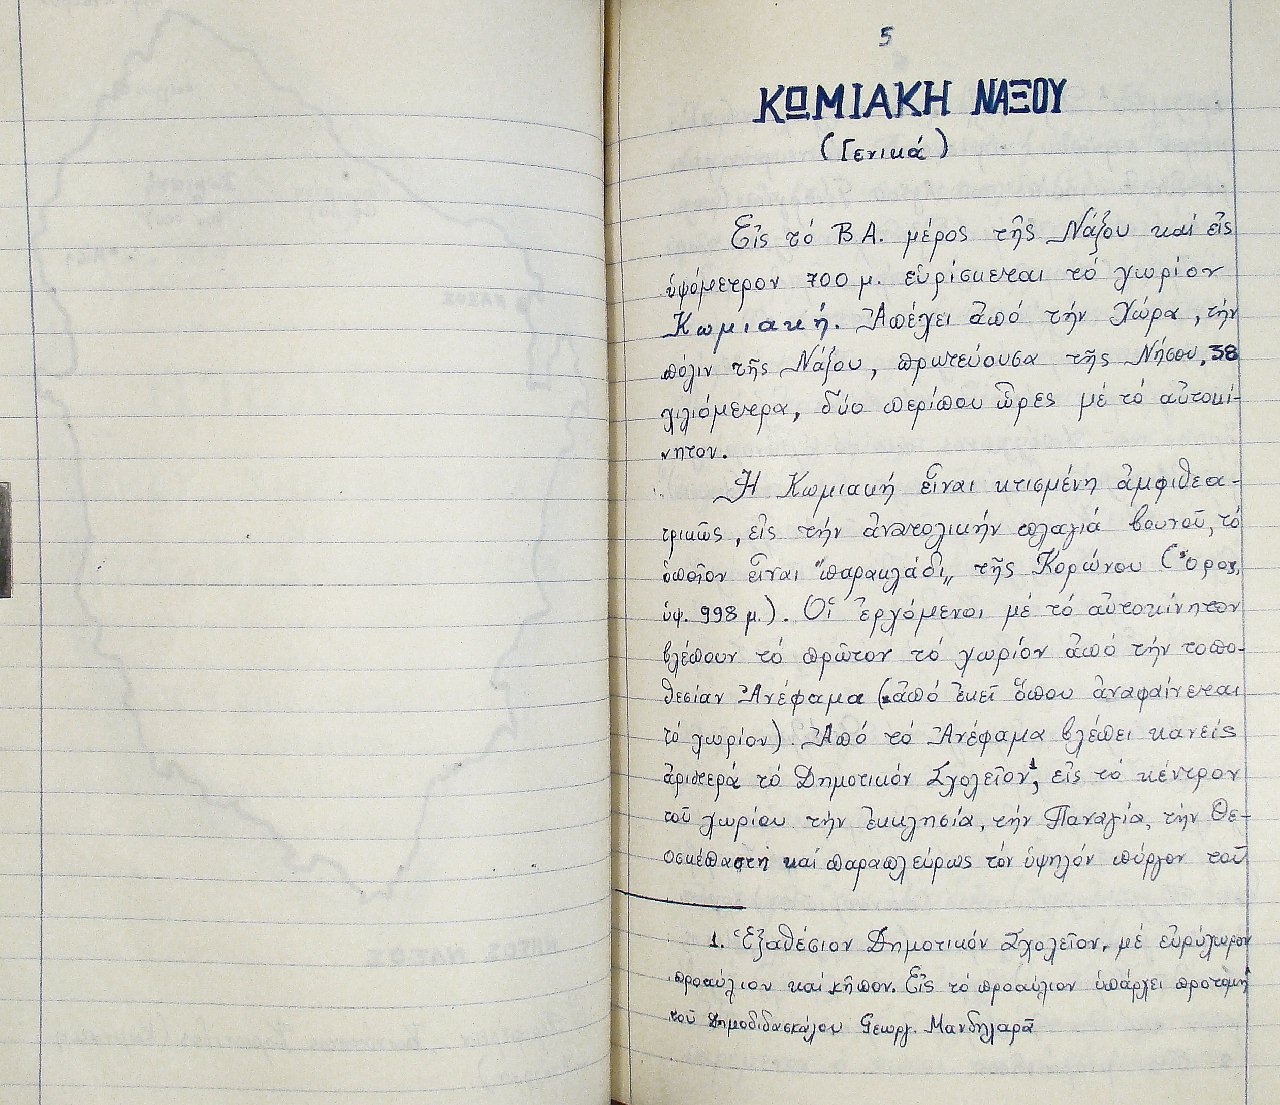 5
ΚΩΜΙΑΚΗ ΝΑΞΟΥ
(Γενικά)
Εἰς τό ΒΑ. μέρος τῆς Νάξου καί εἰς
ὑψόμετρον 700 μ. εὑρίσκεται τό χωρίον
Κωμιακή. Ἀπέχει ἀπό τήν Χώρα, τήν
πόλιν τῆς Νάξου, πρωτεύουσα τῆς Νήσου, 38
χιλιόμετρα, δύο περίπου ὧρες μέ τό αὐτοκί-
νητον.
Ἡ Κωμιακή εἶναι κτισμένη ἀμφιθεα-
τρικῶς, εἰς τήν ἀνατολικήν πλαγιά βουνοῦ, τό
ὁποῖον εἶναι "παρακλάδι" τῆς Κορώνου (Ὄρος,
ὑψ. 998 μ.). Οἱ ἐρχόμενοι μέ τό αὐτοκίνητον
βλέπουν τό πρῶτον τό χωρίον ἀπό τήν τοπο-
θεσίαν Ἀνέφαμα (ἀπό ἐκεῖ ὅπου ἀναφαίνεται
τό χωρίον). Ἀπό τό Ἀνέφαμα βλέπει κανείς
ἀριστερά τό Δημοτικόν Σχολεῖον¹, εἰς τό κέντρον
τοῦ χωρίου τήν ἐκκλησία, τήν Παναγία, τήν Θε-
οσκέπαστη καί παραπλεύρως τόν ὑψηλόν πύργον τοῦ
1. Ἑξαθέσιον Δημοτικόν Σχολεῖον, μέ εὐρύχωρον
προαύλιον καί κῆπον. Εἰς τό προαύλιον ὑπάρχει προτομή
τοῦ Δημοδιδασκάλου Γεωργ. Μανδηλαρᾶ